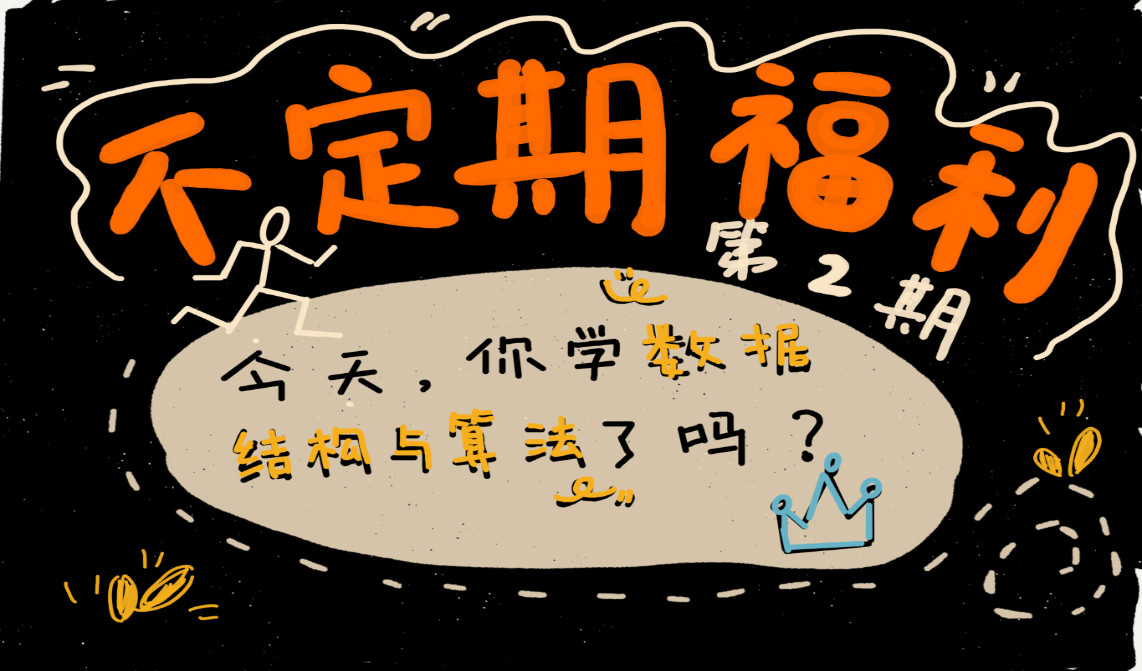 不定期福利
第2期
今天，你学数据
结构与算法了吗？